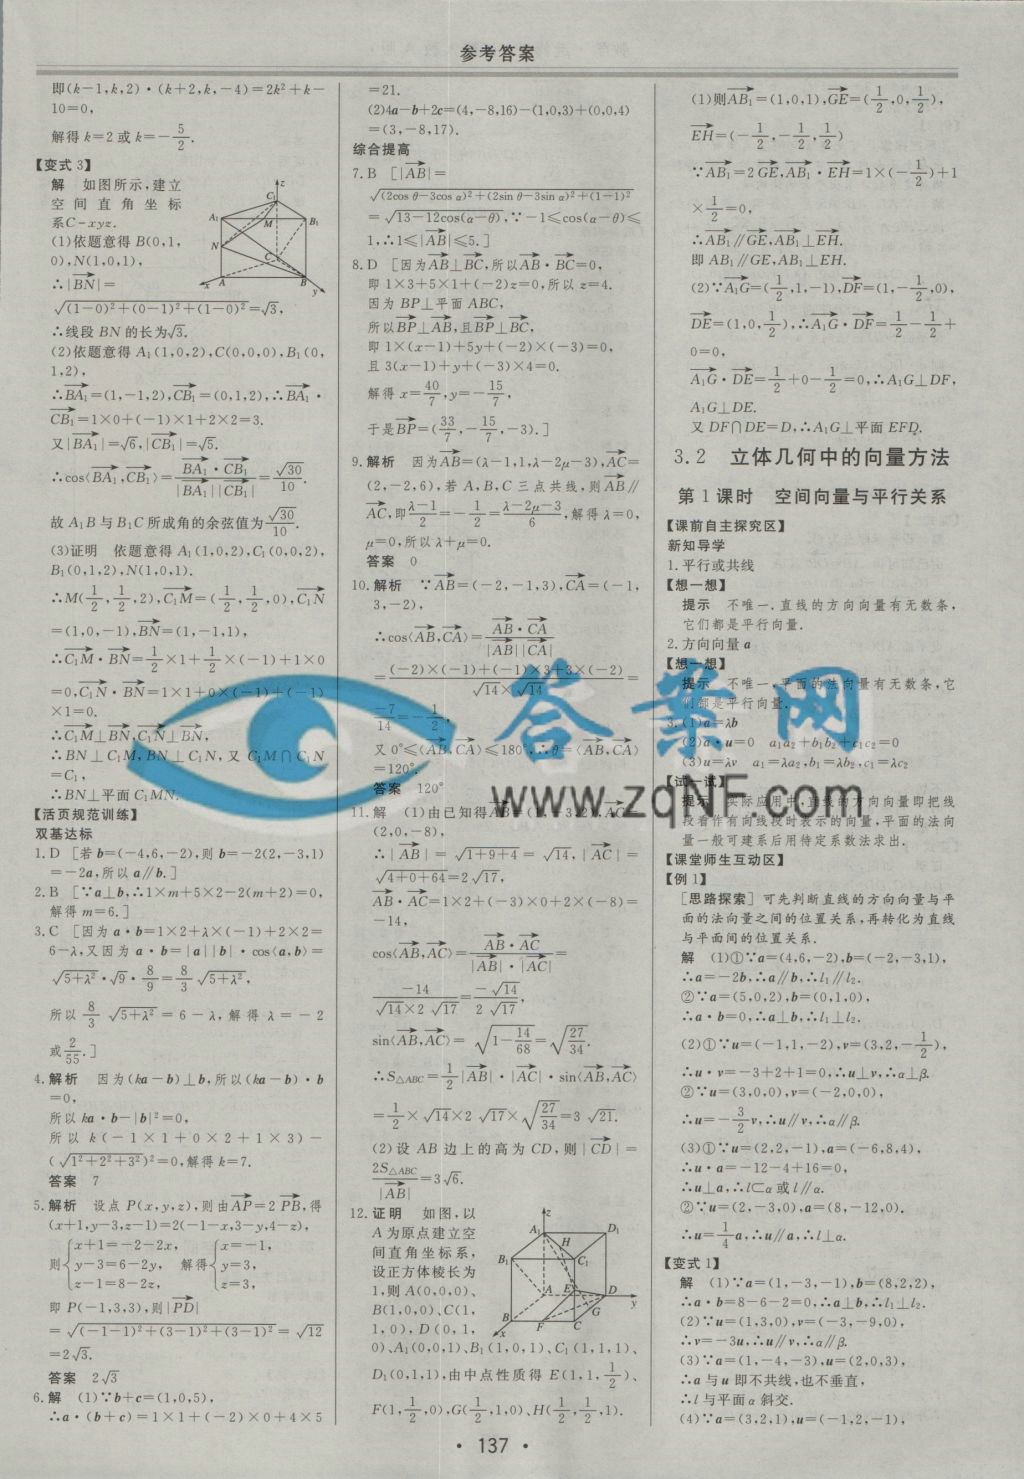 参考答案
即(k-1,k,2)·(k+2,k,-4)=2k²+k-
10=0,
解得k=2或k=-5/2.
【变式3】
解 如图所示,建立
空间直角坐标
系C-xyz.
(1)依题意得B(0,1,
0),N(1,0,1),
∴|BN|=
√(1-0)²+(0-1)²+(1-0)²=√3,
∴线段BN的长为√3.
(2)依题意得A₁(1,0,2),C(0,0,0),B₁(0,
1,2),
∴BA₁=(1,-1,2),CB₁=(0,1,2),∴BA₁·
CB₁=1×0+(-1)×1+2×2=3.
又|BA₁|=√6,|CB₁|=√5.
∴cos⟨BA₁,CB₁⟩=BA₁·CB₁/|BA₁||CB₁|=√30/10.
故A₁B与B₁C所成角的余弦值为√30/10.
(3)证明 依题意得A₁(1,0,2),C₁(0,0,2),
B₁(0,1,2),N(1,0,1).
∴M(1/2,1/2,2),C₁M=(1/2,1/2,0),C₁N
=(1,0,-1),BN=(1,-1,1),
∴C₁M·BN=1/2×1+1/2×(-1)+1×0
=0,C₁N·BN=1×1+0×(-1)+(-1)
×1=0.
∴C₁M⊥BN,C₁N⊥BN,
∴BN⊥C₁M,BN⊥C₁N,又C₁M∩C₁N
=C₁,
∴BN⊥平面C₁MN.
【活页规范训练】
双基达标
1.D [若b=(-4,6,-2),则b=-2(2,-3,1)
=-2a,所以a∥b.]
2.B [∵a⊥b,∴1×m+5×2-2(m+2)=0,
解得m=6.]
3.C [因为a·b=1×2+λ×(-1)+2×2=
6-λ,又因为a·b=|a||b|·cos⟨a,b⟩=
√5+λ²·√9·8/9=8/3√5+λ²,
所以8/3√5+λ²=6-λ,解得λ=-2
或2/55.]
4.解析 因为(ka-b)⊥b,所以(ka-b)·b
=0,
所以ka·b-|b|²=0,
所以k(-1×1+0×2+1×3)-
(√1²+2²+3²)²=0,解得k=7.
答案 7
5.解析 设点P(x,y,z),则由AP=2PB,得
(x+1,y-3,z-1)=2(-1-x,3-y,4-z),
则{x+1=-2-2x, y-3=6-2y, z-1=8-2z, 解得{x=-1, y=3, z=3,
即P(-1,3,3),则|PD|
=√(-1-1)²+(3-1)²+(3-1)²=√12
=2√3.
答案 2√3
6.解 (1)∵b+c=(1,0,5),
∴a·(b+c)=1×1+(-2)×0+4×5
=21.
(2)4a-b+2c=(4,-8,16)-(1,0,3)+(0,0,4)
=(3,-8,17).
综合提高
7.B [|AB|=
√(2cos θ-3cos α)²+(2sin θ-3sin α)²+(1-1)²
=√13-12cos(α-θ),∵-1≤cos(α-θ)≤
1,∴1≤|AB|≤5.]
8.D [因为AB⊥BC,所以AB·BC=0,
即1×3+5×1+(-2)z=0,所以z=4.
因为BP⊥平面ABC,
所以BP⊥AB,且BP⊥BC,
即1×(x-1)+5y+(-2)×(-3)=0,
且3(x-1)+y+(-3)×4=0.
解得x=40/7,y=-15/7,
于是BP=(33/7,-15/7,-3).]
9.解析 因为AB=(λ-1,1,λ-2μ-3),AC=
(2,-2,6),若A,B,C三点共线,则AB∥
AC,即λ-1/2=-1/2=λ-2μ-3/6,解得λ=0,
μ=0,所以λ+μ=0.
答案 0
10.解析 ∵AB=(-2,-1,3),CA=(-1,
3,-2),
∴cos⟨AB,CA⟩=AB·CA/|AB||CA|
=(-2)×(-1)+(-1)×3+3×(-2)/√14×√14=
-7/14=-1/2,
又0°≤⟨AB,CA⟩≤180°,∴θ=⟨AB,CA⟩
=120°.
答案 120°
11.解 (1)由已知得AB=(1,-3,2),AC=
(2,0,-8),
∴|AB|=√1+9+4=√14,|AC|=
√4+0+64=2√17,
AB·AC=1×2+(-3)×0+2×(-8)=
-14,
cos⟨AB,AC⟩=AB·AC/|AB|·|AC|=
-14/√14×2√17=-√14/2√17,
sin⟨AB,AC⟩=√1-14/68=√27/34.
∴S△ABC=1/2|AB|·|AC|·sin⟨AB,AC⟩
=1/2×√14×2√17×√27/34=3√21.
(2)设AB边上的高为CD,则|CD|=
2S△ABC/|AB|=3√6.
12.证明 如图,以
A为原点建立空
间直角坐标系,
设正方体棱长为
1,则A(0,0,0)、
B(1,0,0)、C(1,
1,0),D(0,1,
0)、A₁(0,0,1)、B₁(1,0,1)、C₁(1,1,1)、
D₁(0,1,1),由中点性质得E(1,1,1/2)、
F(1,1/2,0),G(1/2,1,0)、H(1/2,1/2,1).
(1)则AB₁=(1,0,1),GE=(1/2,0,1/2),
EH=(-1/2,-1/2,1/2)
∵AB₁=2GE,AB₁·EH=1×(-1/2)+1
×1/2=0,
∴AB₁∥GE,AB₁⊥EH.
即AB₁∥GE,AB₁⊥EH.
(2)∵A₁G=(1/2,1,-1),DF=(1,-1/2,0),
DE=(1,0,1/2),∴A₁G·DF=1/2-1/2+
0=0,
A₁G·DE=1/2+0-1/2=0,∴A₁G⊥DF,
A₁G⊥DE.
又DF∩DE=D,∴A₁G⊥平面EFD.
3.2 立体几何中的向量方法
第1课时 空间向量与平行关系
【课前自主探究区】
新知导学
1.平行或共线
【想一想】
提示 不唯一,直线的方向向量有无数条,
它们都是平行向量.
2.方向向量a
【想一想】
提示 不唯一,平面的法向量有无数条,它
们都是平行向量.
3.(1)a=λb
(2)a·u=0 a₁a₂+b₁b₂+c₁c₂=0
(3)u=λv a₁=λa₂,b₁=λb₂,c₁=λc₂
【试一试】
提示 实际应用中,直线的方向向量即把线
段看作有向线段时表示的向量,平面的法向
量一般可建系后用待定系数法求出.
【课堂师生互动区】
【例1】
[思路探索] 可先判断直线的方向向量与平
面的法向量之间的位置关系,再转化为直线
与平面间的位置关系.
解 (1)①∵a=(4,6,-2),b=(-2,-3,1),
∴a=-2b,∴a∥b,∴l₁∥l₂.
②∵a=(5,0,2),b=(0,1,0),
∴a·b=0,∴a⊥b,∴l₁⊥l₂.
(2)①∵u=(-1,1,-2),v=(3,2,-1/2),
∴u·v=-3+2+1=0,∴u⊥v,∴α⊥β.
②∵u=(3,0,0),v=(-2,0,0),
∴u=-3/2v,∴u∥v,∴α∥β.
(3)①∵u=(2,2,-1),a=(-6,8,4),
∴u·a=-12-4+16=0,
∴u⊥a,∴l⊂α或l∥α.
②∵u=(2,-3,0),a=(8,-12,0).
∴u=1/4a,∴u∥a,∴l⊥α.
【变式1】
解 (1)∵a=(1,-3,-1),b=(8,2,2),
∴a·b=8-6-2=0,∴a⊥b,∴l₁⊥l₂.
(2)∵u=(1,3,0),v=(-3,-9,0),
∴v=-3u,∴u∥v,∴α∥β.
(3)∵a=(1,-4,-3),u=(2,0,3),
∴a与u即不共线,也不垂直,
∴l与平面α斜交.
(4)∵a=(3,2,1),u=(-1,2,-1),
答案网
www.zqNF.com
· 137 ·